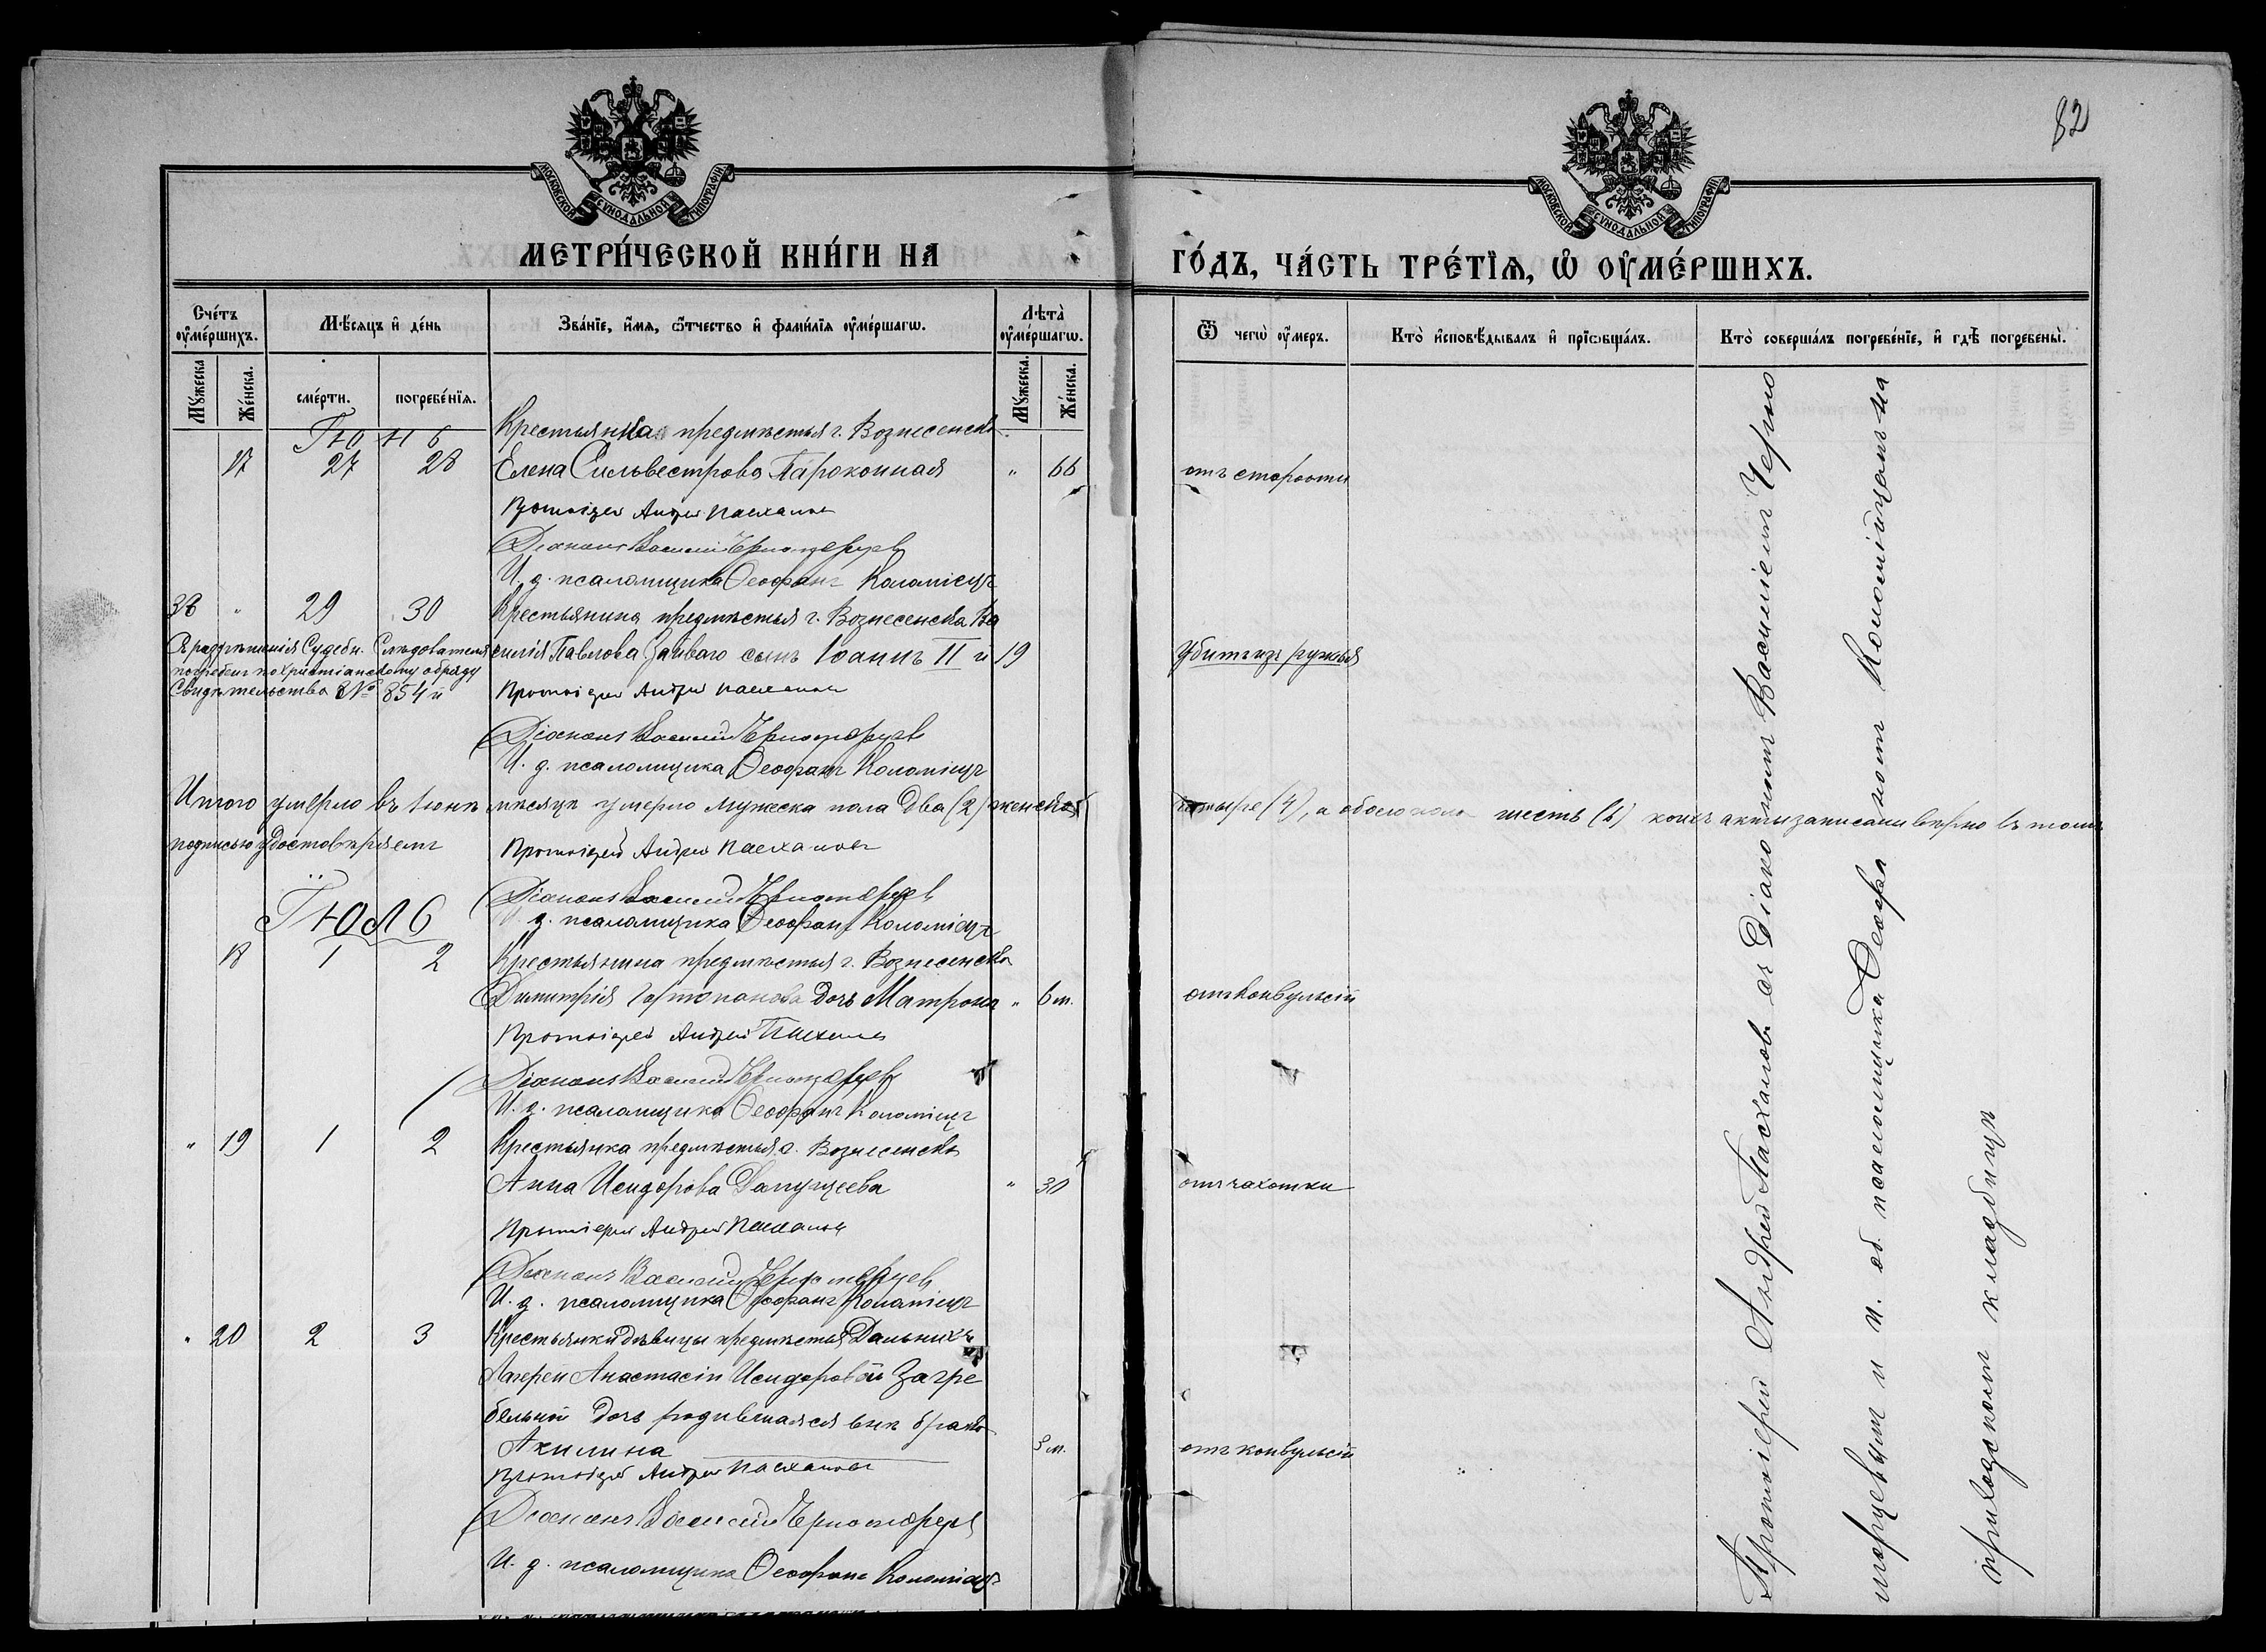 82
МОСКОВСКОЙ СѴНОДАЛЬНОЙ ТИПОГРАФІИ
МОСКОВСКОЙ СѴНОДАЛЬНОЙ ТИПОГРАФІИ
МЕТРИ́ЧЕСКОЙ КНИ́ГИ НА ГО́ДЪ, ЧА́СТЬ ТРЕ́ТІѦ, Ѡ҆ ОУ҆МЕ́РШИХЪ.
Сче́тъ оу҆ме́ршихъ.
Мѣ́сяцъ и҆ де́нь
Зва́нїе, и҆́мя, ѻ҆́тчество и҆ фами́лїя оу҆ме́ршагѡ.
Лѣ́та оу҆ме́ршагѡ.
Ѿ чегѡ̀ оу҆́меръ.
Кто̀ и҆сповѣ́дывалъ и҆ прїѡбща́лъ.
Кто̀ соверша́лъ погребе́нїе, и҆ гдѣ̀ погребены̀.
Му́жеска
Же́нска.
сме́рти.
погребе́нїя.
Му́жеска.
Же́нска.
Іюнь
Крестьянка предмѣстья г. Вознесенска
17 27 28 Елена Сильвестрова Пароконная " 66 отъ старости
Протоіерей Андрей Пасхаловъ
Діаконъ Василій Черноморцевъ
И. д. псаломщика Ѳеофанъ Коломіецъ
38 " 29 30 Крестьянина предмѣстья г. Вознесенска Ва
силія Павлова Зайваго сынъ Іоаннъ II й 19 Убитъ изъ ружья
Съ разрѣшенія Судебн. Слѣдователя
погребенъ по христіанскому обряду
Свидѣтельство № 854 й
Протоіерей Андрей Пасхаловъ
Діаконъ Василій Черноморцевъ
И. д. псаломщика Ѳеофанъ Коломіецъ
Итого умерло въ Іюнѣ мѣсяцѣ умерло мужеска пола два (2) женска четыре (4), а обоего пола шесть (6) коихъ акты записаны вѣрно въ томъ
подписью удостовѣряемъ Протоіерей Андрей Пасхаловъ
Діаконъ Василій Черноморцевъ
И. д. псаломщика Ѳеофанъ Коломіецъ
Іюль
18 1 2 Крестьянина предмѣстья г. Вознесенска
Димитрія дочь Матрона " 6 м. отъ конвульсій
Протоіерей Андрей Пасхаловъ
Діаконъ Василій Черноморцевъ
И. д. псаломщика Ѳеофанъ Коломіецъ
" 19 1 2 Крестьянка предмѣстья г. Вознесенска
Анна Исидорова " 30 отъ чахотки
Протоіерей Андрей Пасхаловъ
Діаконъ Василій Черноморцевъ
И. д. псаломщика Ѳеофанъ Коломіецъ
" 20 2 3 Крестьянки дѣвицы предмѣстья Дальнихъ
Лагерей Анастасіи Исидоровой Загре
бельной дочь родившаяся внѣ брака
Акилина 3 м. отъ конвульсій
Протоіерей Андрей Пасхаловъ
Діаконъ Василій Черноморцевъ
И. д. псаломщика Ѳеофанъ Коломіецъ
Протоіерей Андрей Пасхаловъ съ Діакономъ Василіемъ Черно
морцевымъ и и. об. псаломщика Ѳеофаномъ Коломійцемъ на
приходскомъ кладбищѣ